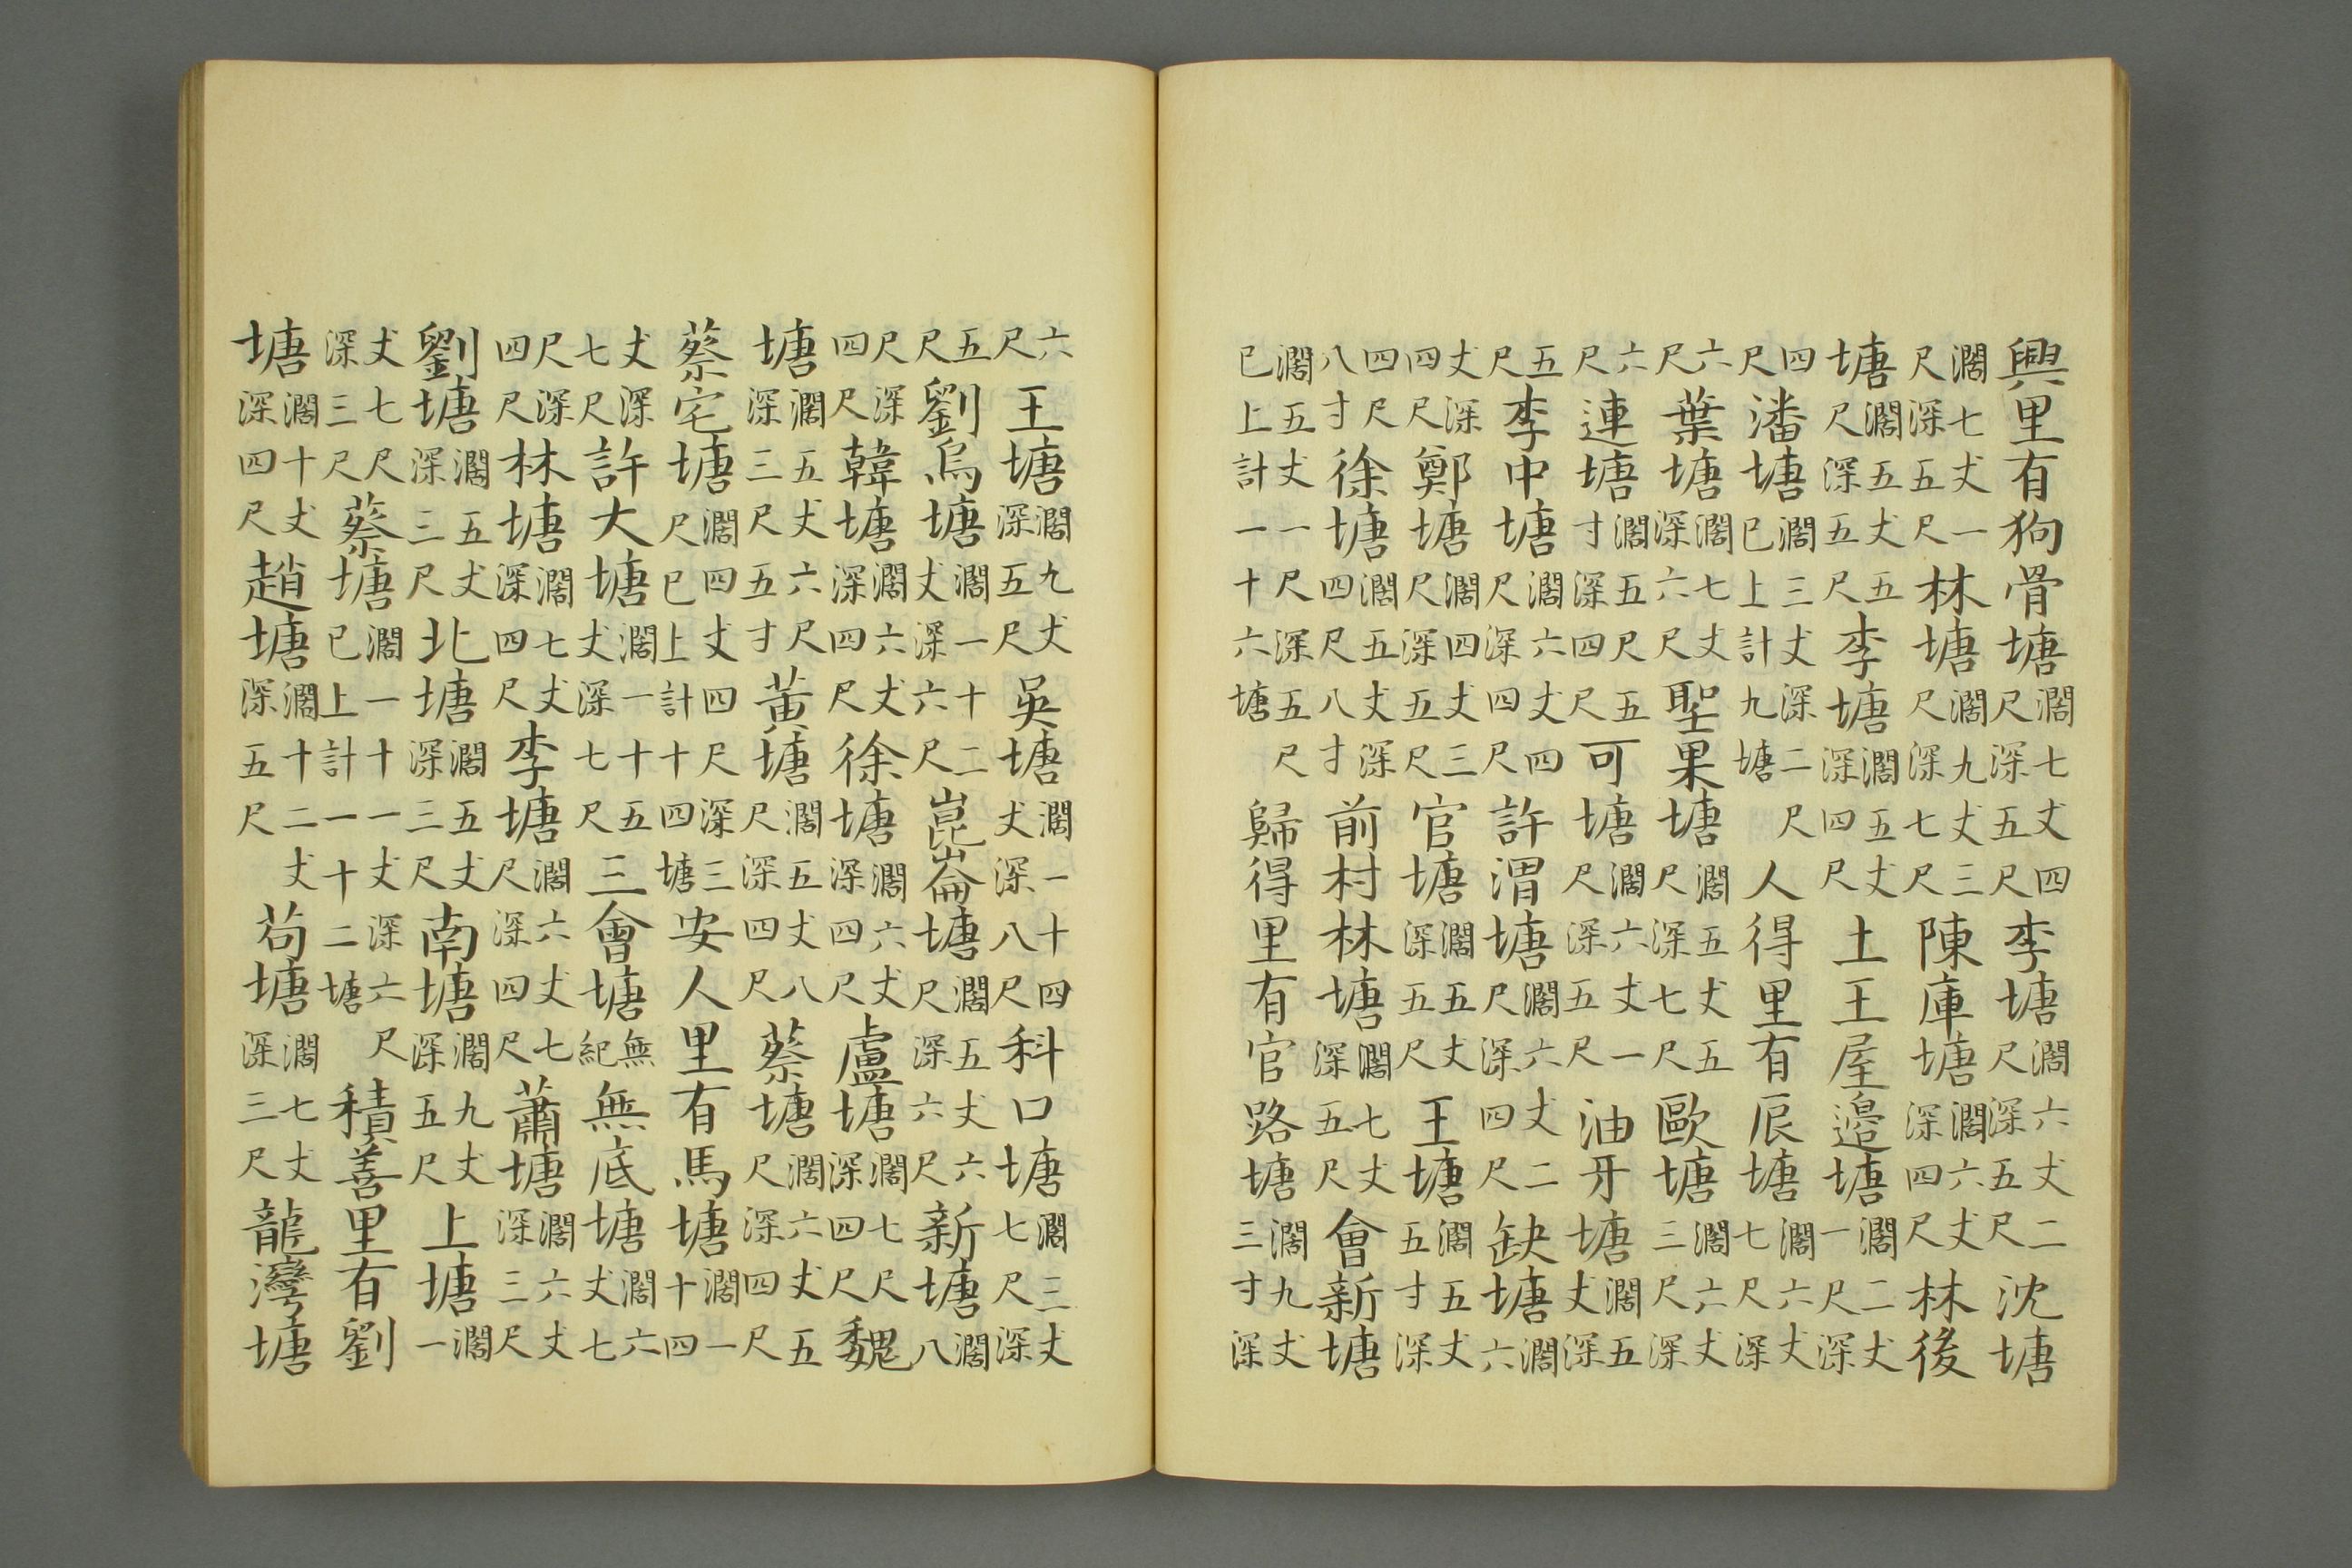 興里有狗骨塘闊七丈四尺深五尺李塘闊六丈二尺深五尺沈塘
闊七丈一尺深五尺林塘闊九丈三尺深七尺陳庫塘闊六丈深四尺林後
塘闊五丈五尺深五尺李塘闊五丈深四尺土王屋邉塘闊二丈一尺深
四尺潘塘闊三丈深二尺已上計九塘人得里有辰塘闊六丈七尺深
六尺葉塘闊七丈深六尺聖果塘闊五丈五尺深七尺歐塘闊六丈三尺深
六尺連塘闊五尺五寸深四尺可塘闊六丈一尺深五尺油牙塘闊五丈深
五尺李中塘闊六丈四尺深四尺許渭塘闊六丈二尺深四尺缺塘闊六
丈深四尺鄭塘闊四丈三尺深五尺官塘闊五丈深五尺王塘闊五丈五寸深
四尺八寸徐塘闊五丈深四尺八寸前村林塘闊七丈深五尺會新塘
闊五丈一尺深五尺已上計一十六塘歸得里有官路塘闊九丈三寸深
六尺王塘闊九丈深五尺吳塘闊一十四丈深八尺科口塘闊三丈七尺深
五尺劉烏塘闊一十二丈深六尺崑崙塘闊五丈六尺深六尺新塘闊八
尺深四尺韓塘闊六丈深四尺徐塘闊六丈深四尺盧塘闊七尺深四尺魏
塘闊五丈六尺深三尺五寸黄塘闊五丈八尺深四尺蔡塘闊六丈五尺深四尺
蔡宅塘闊四丈四尺深三尺已上計十四塘安人里有馬塘闊一十四
丈深七尺許大塘闊一十五丈深七尺三會塘無紀無底塘闊六丈七
尺深四尺林塘闊七丈深四尺李塘闊六丈七尺深四尺蕭塘闊六丈深三尺
劉塘闊五丈深三尺北塘闊五丈深三尺南塘闊九丈深五尺上塘闊一
丈七尺深三尺蔡塘闊一十一丈深六尺已上計一十二塘積善里有劉
塘闊十丈深四尺趙塘闊十二丈深五尺苟塘闊七丈深三尺龍灣塘